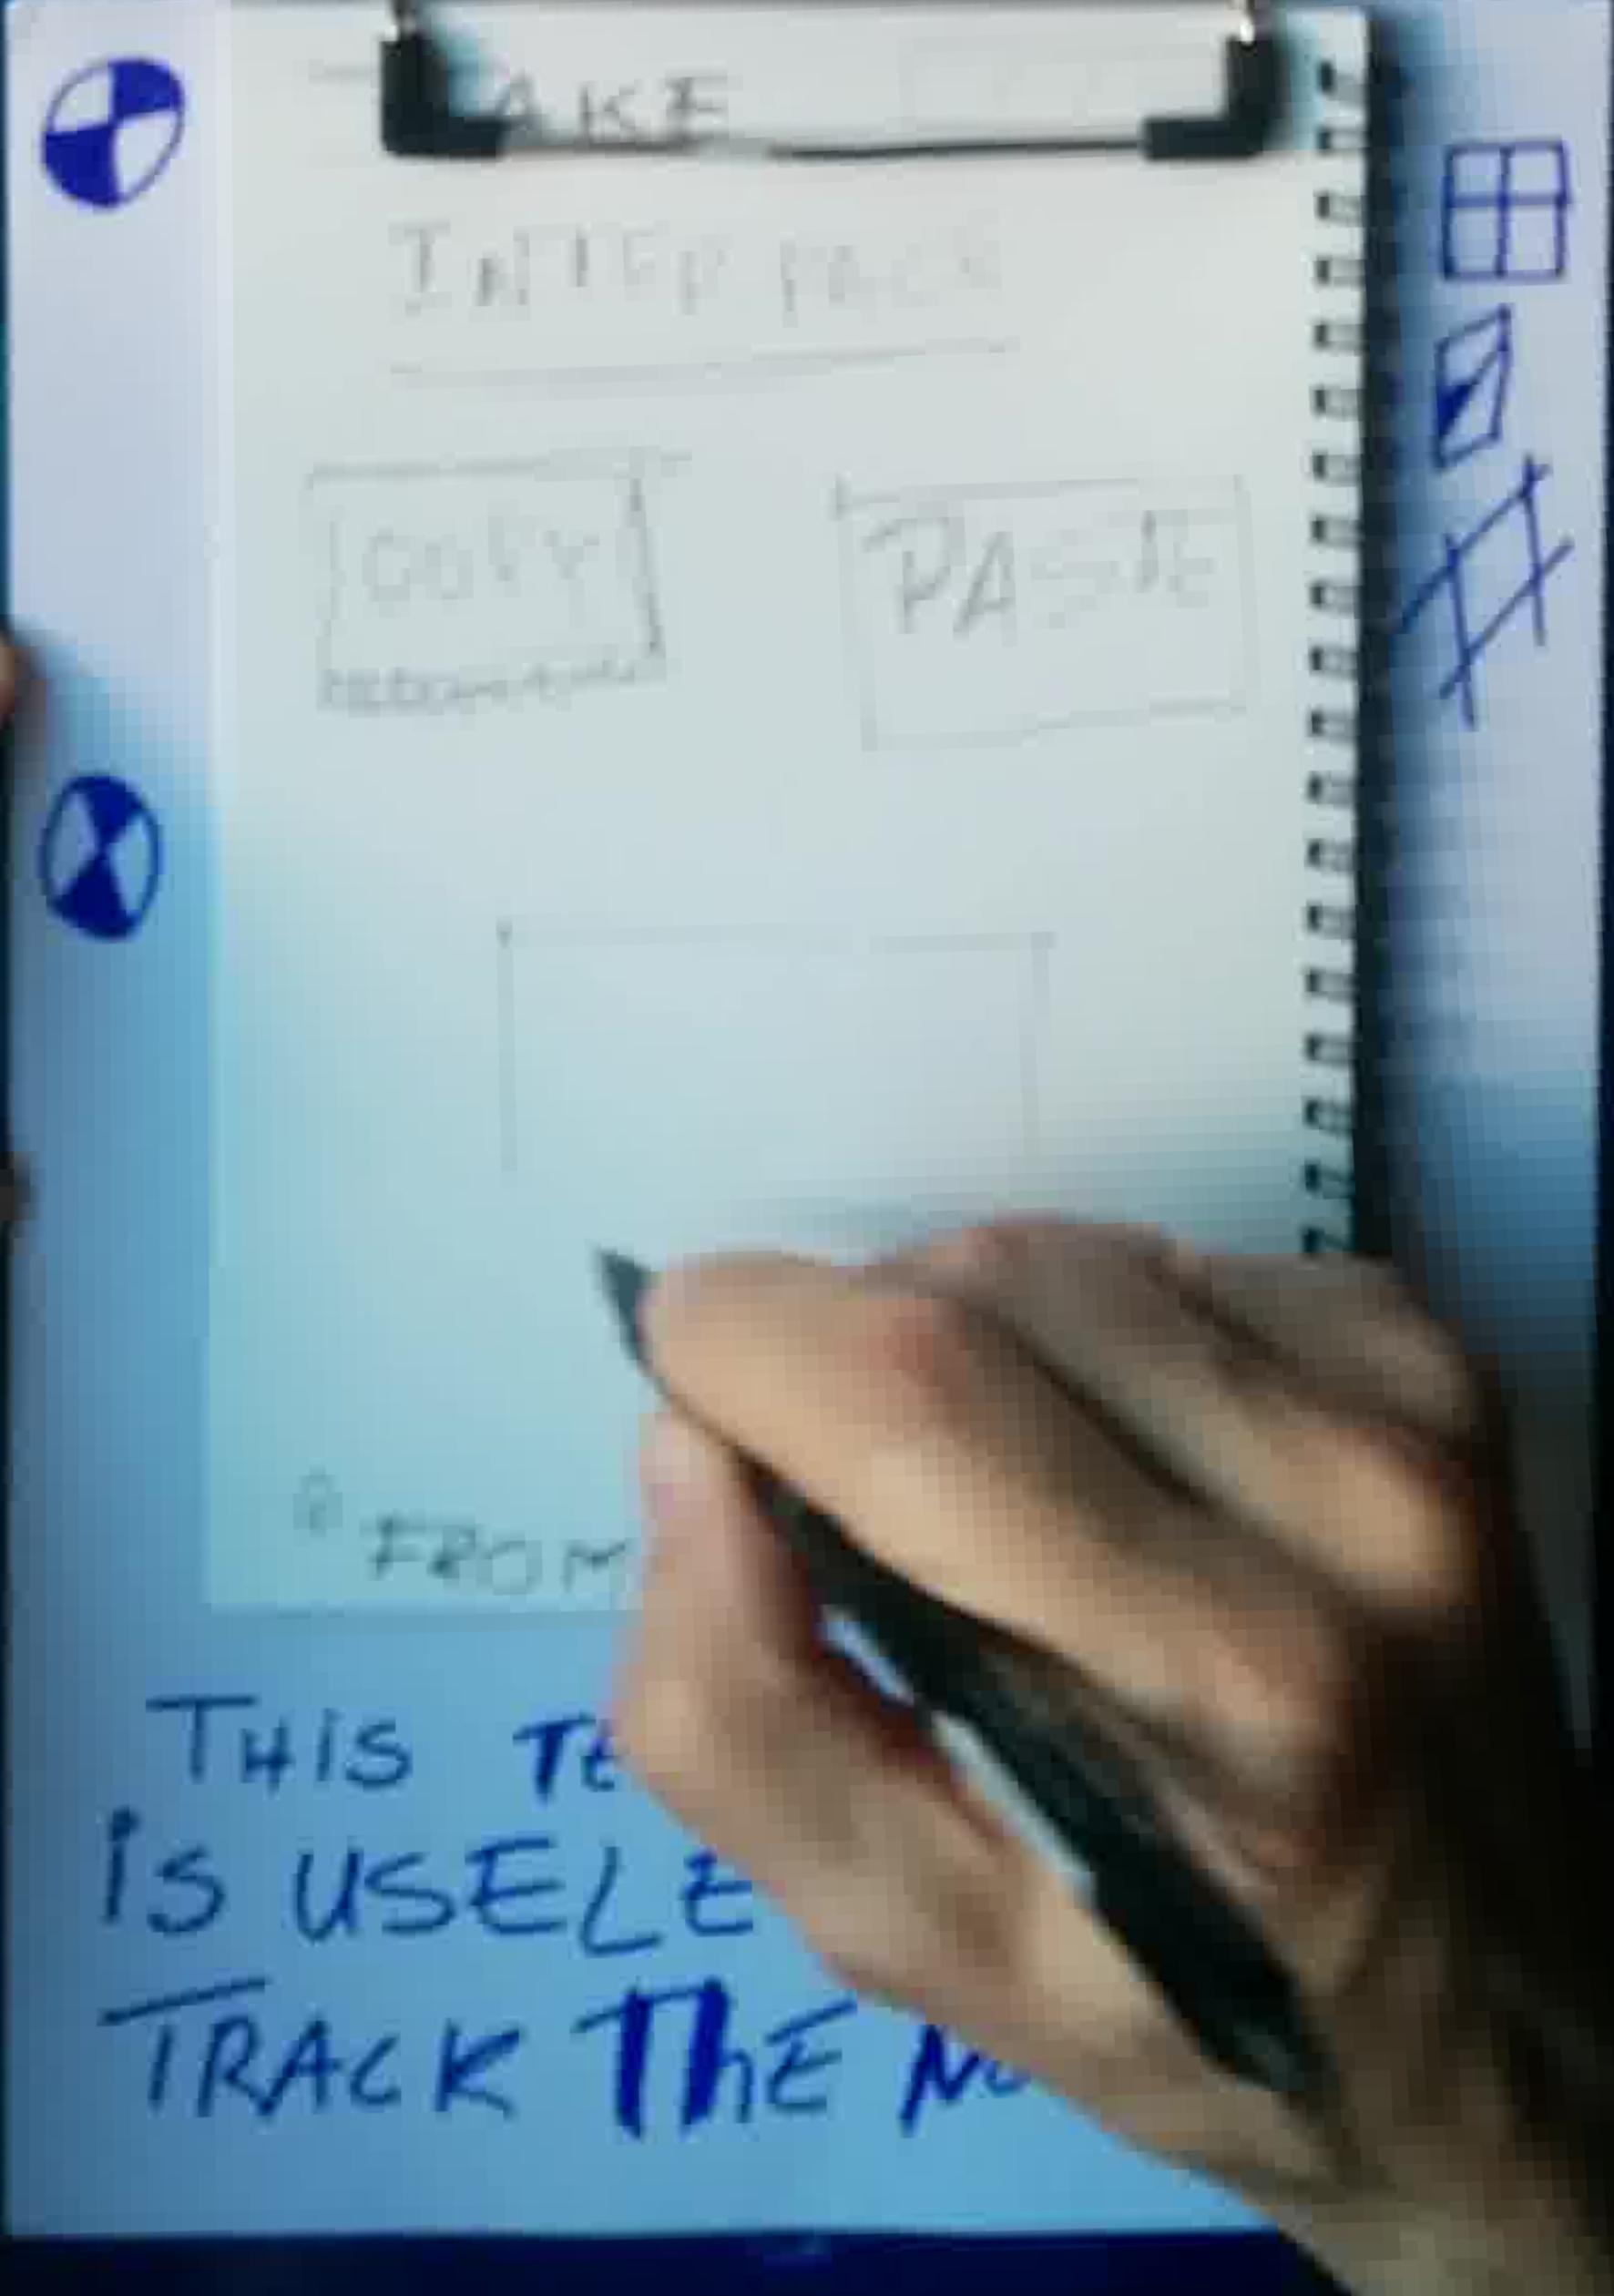 AKE
INTERFACE
COPY PASTE
FROM
THiS TE
iS USELE
TRACK ThE